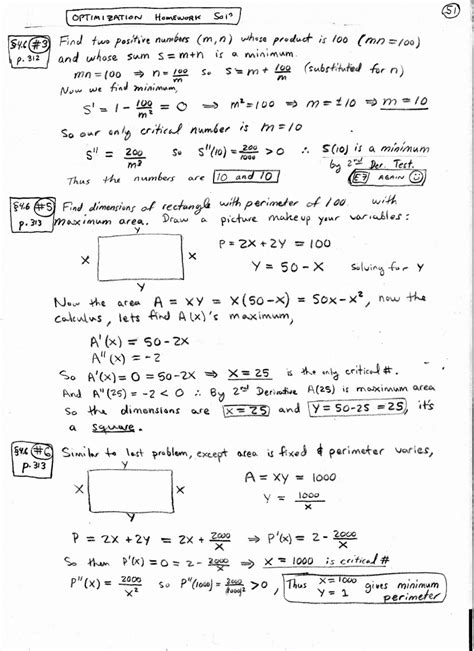 OPTIMIZATION HOMEWORK SOL^n
51
§4.6 #3 Find two positive numbers (m, n) whose product is 100 (mn = 100)
p. 312 and whose sum S = m+n is a minimum.
mn = 100 ⇒ n = 100/m so S = m + 100/m (substituted for n)
Now we find minimum,
S' = 1 - 100/m² = 0 ⇒ m² = 100 ⇒ m = ±10 ⇒ m = 10
So our only critical number is m = 10
S'' = 200/m³ so S''(10) = 200/1000 > 0 ∴ S(10) is a minimum
by 2nd Der. Test.
Thus the numbers are 10 and 10
AGAIN
§4.6 #5 Find dimensions of rectangle with perimeter of 100 with
p. 313 maximum area. Draw a picture makeup your variables:
Y
X X P = 2X + 2Y = 100
Y = 50 - X solving for Y
Y
Now the area A = XY = X(50-X) = 50X - X², now the
calculus, lets find A(x)'s maximum,
A'(x) = 50 - 2X
A''(x) = -2
So A'(x) = 0 = 50 - 2X ⇒ X = 25 is the only critical #.
And A''(25) = -2 < 0 ∴ By 2nd Derivative A(25) is maximum area
So the dimensions are X = 25 and Y = 50-25 = 25, it's
a square.
§4.6 #6 Similar to last problem, except area is fixed & perimeter varies,
p. 313
Y
X X A = XY = 1000
Y = 1000/X
Y
P = 2X + 2Y = 2X + 2000/X ⇒ P'(x) = 2 - 2000/X
So then P'(x) = 0 = 2 - 2000/X ⇒ X = 1000 is critical #
P''(x) = 2000/X² so P''(1000) = 2000/(1000)² > 0, Thus X = 1000 gives minimum
Y = 1 perimeter